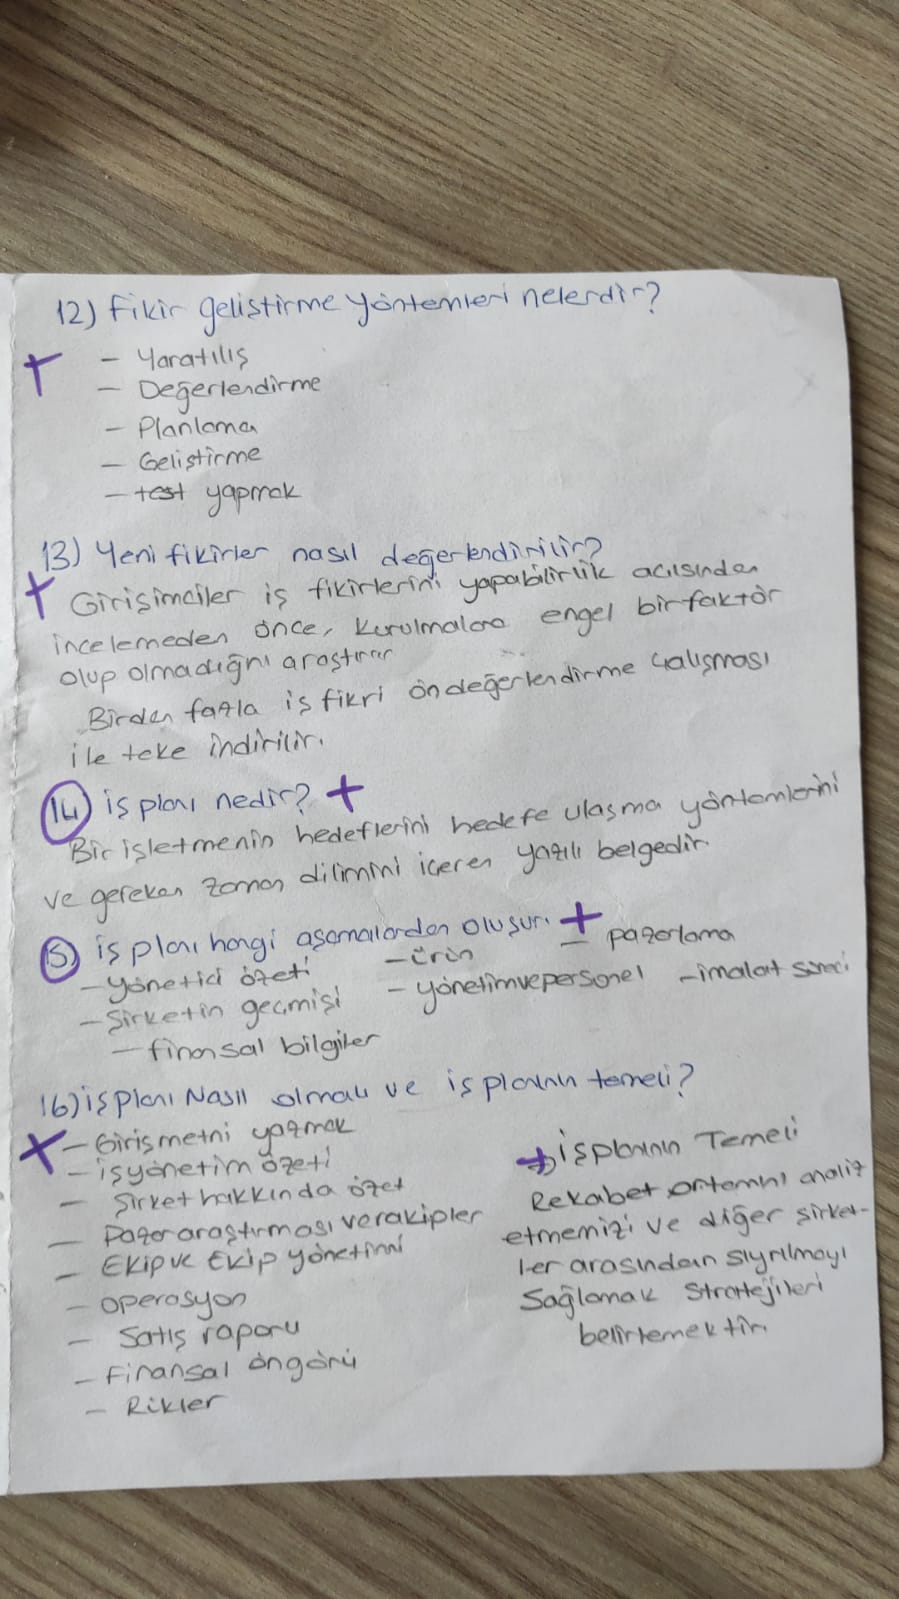 12) Fikir geliştirme yöntemleri nelerdir?
- Yaratılış
- Değerlendirme
- Planlama
- Geliştirme
- test yapmak
13) Yeni fikirler nasıl değerlendirilir?
Girişimciler iş fikirlerini yapabilirlik açısından
incelemeden önce, kurulmalara engel bir faktör
olup olmadığnı araştırır
Birden fazla iş fikri öndeğerlendirme çalışması
ile teke indirilir.
14) iş planı nedir? +
Bir işletmenin hedeflerini hedefe ulaşma yöntemlerini
ve gereken zaman dilimini içeren yazılı belgedir.
15) iş planı hangi aşamalardan oluşur. +
- yönetici özeti - ürün - pazarlama
- Şirketin geçmişi - yönetimvepersonel - imalat süreci
- finansal bilgiler
16) iş planı Nasıl olmalı ve iş planının temeli?
- Giriş metni yazmak
- iş yönetim özeti
- Şirket hakkında özet
- Pazar araştırması ve rakipler
- Ekip ve Ekip yönetimi
- operasyon
- Satış raporu
- Finansal öngörü
- Rikler
→ İş planının Temeli
Rekabet ortamnı analiz
etmemizi ve diğer şirket-
ler arasından sıyrılmayı
Sağlamak Stratejileri
belirlemektir.